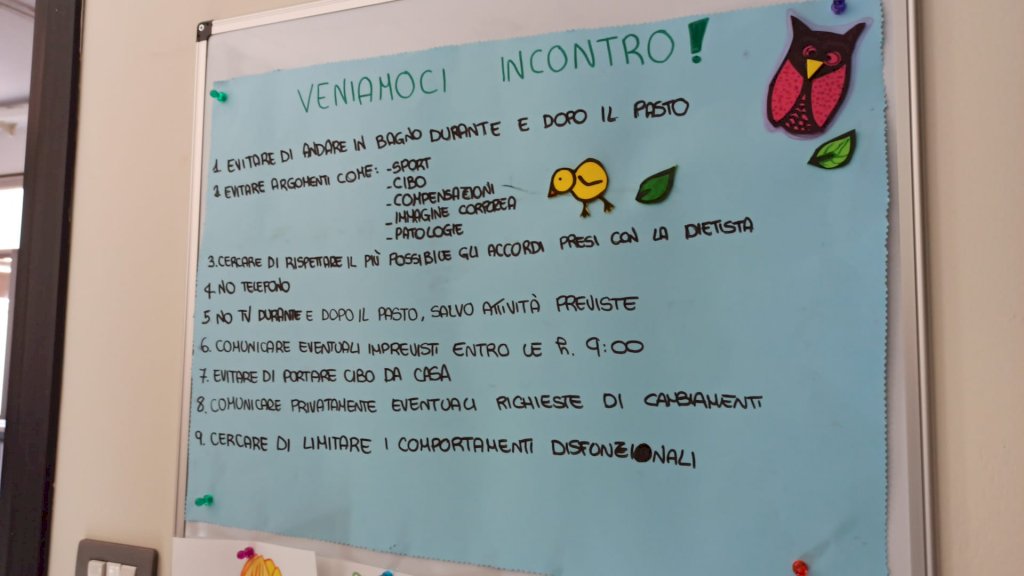 VENIAMOCI INCONTRO!
1. EVITARE DI ANDARE IN BAGNO DURANTE E DOPO IL PASTO
2. EVITARE ARGOMENTI COME: -SPORT
-CIBO
-COMPENSAZIONI
-IMMAGINE CORPOREA
-PATOLOGIE
3. CERCARE DI RISPETTARE IL PIÙ POSSIBILE GLI ACCORDI PRESI CON LA DIETISTA
4 NO TELEFONO
5 NO TV DURANTE E DOPO IL PASTO, SALVO ATTIVITÀ PREVISTE
6. COMUNICARE EVENTUALI IMPREVISTI ENTRO LE h. 9:00
7. EVITARE DI PORTARE CIBO DA CASA
8. COMUNICARE PRIVATAMENTE EVENTUALI RICHIESTE DI CAMBIAMENTI
9. CERCARE DI LIMITARE I COMPORTAMENTI DISFONZIONALI